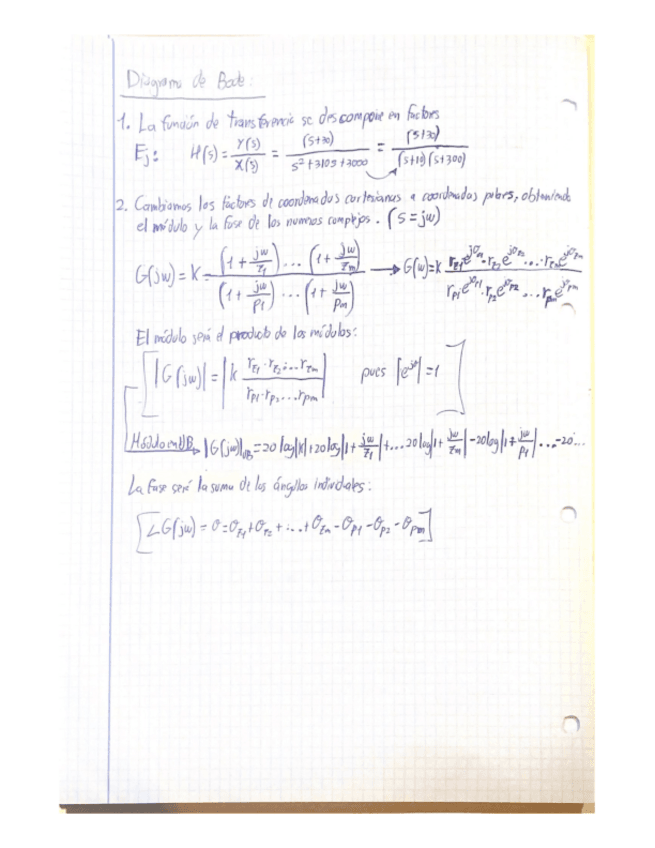 Diagrama de Bode:
1. La función de transferencia se descompone en factores
Ej: H(s) = Y(s)/X(s) = (s+30)/(s²+310s+3000) = (s+30)/((s+10)(s+300))
2. Cambiamos los factores de coordenadas cartesianas a coordenadas polares, obteniendo
el módulo y la fase de los numeros complejos. (s=jw)
G(jw) = K (1+jw/z1)...(1+jw/zm) / (1+jw/p1)...(1+jw/pm) → G(w)=K rz1e^jσz1·rz2e^jσz2....rzme^jσzm / rp1e^σp1·rp2e^σp2...rpme^jσpm
El módulo será el producto de los módulos:
[|G(jw)| = |K rz1·rz2....rzm / rp1·rp2....rpm| pues |e^jσ|=1]
Módulo en dB → |G(jw)|dB = 20 log|K|+20log|1+jw/z1|+...20log|1+jw/zm|-20log|1+jw/p1|...-20...
La fase será la suma de los ángulos individuales:
[∠G(jw) = σ = σz1+σz2+...+σzm-σp1-σp2-σpm]